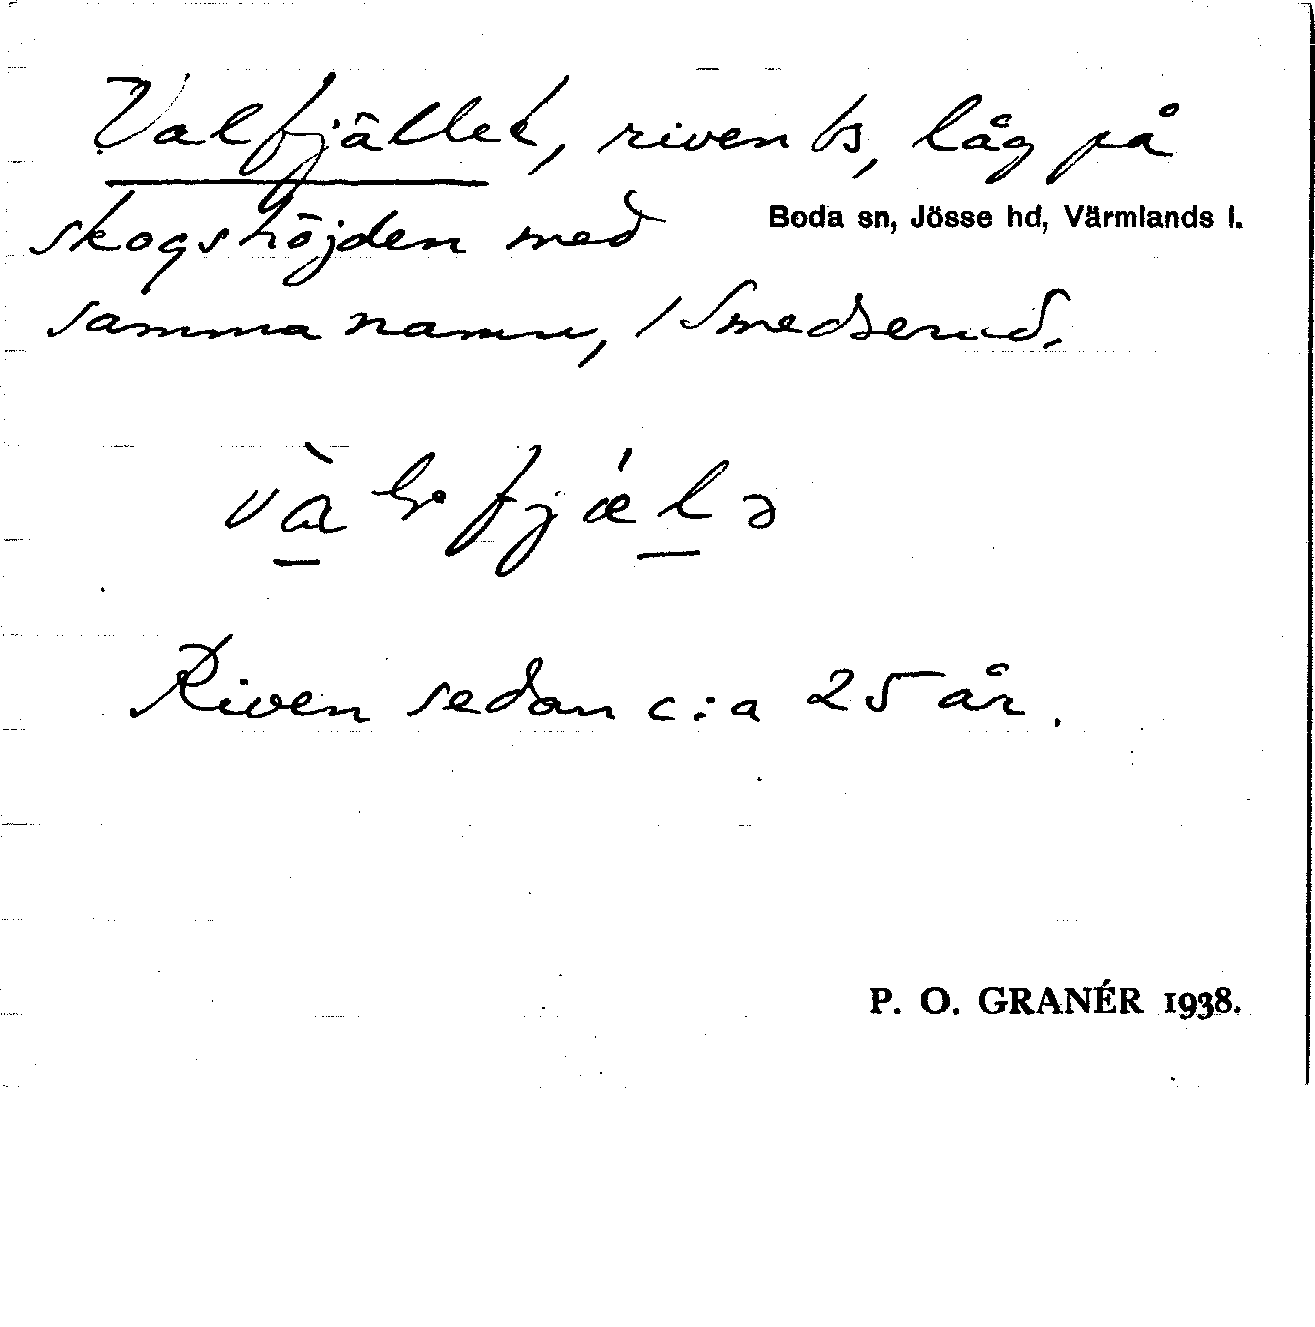 Valfjället, riven ts, låg på
skogshöjden med
Boda sn, Jösse hd, Värmlands l.
samma namn, / Smedserud.
fjælə
Riven sedan c:a 25 år.
P. O. GRANÉR 1938.